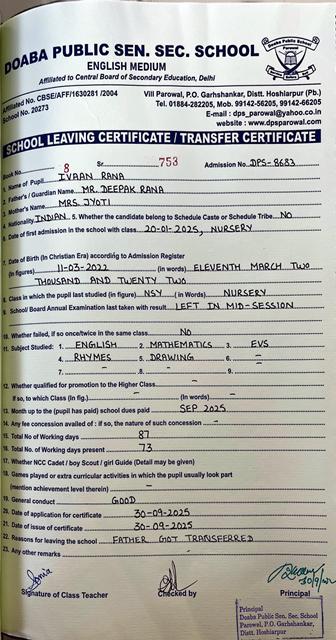 DOABA PUBLIC SEN. SEC. SCHOOL
ENGLISH MEDIUM
Affiliated to Central Board of Secondary Education, Delhi
Affiliated No. CBSE/AFF/1630281 /2004
School No. 20273
Vill Parowal, P.O. Garhshankar, Distt. Hoshiarpur (Pb.)
Tel. 01884-282205, Mob. 99142-56205, 99142-66205
E-mail : dps_parowal@yahoo.co.in
website : www.dpsparowal.com
SCHOOL LEAVING CERTIFICATE / TRANSFER CERTIFICATE
Book No. 8 Sr 753 Admission No. DPS-8683
1. Name of Pupil IVAAN RANA
2. Father's / Guardian Name MR. DEEPAK RANA
3. Mother's Name MRS. JYOTI
4. Nationality INDIAN 5. Whether the candidate belong to Schedule Caste or Schedule Tribe NO
6. Date of first admission in the school with class 20-01-2025, NURSERY
7. Date of Birth (in Christian Era) according to Admission Register
(In figures) 11-03-2022 (in words) ELEVENTH MARCH TWO
THOUSAND AND TWENTY TWO
8. Class in which the pupil last studied (in figure) NSY (in Words) NURSERY
9. School/ Board Annual Examination last taken with result LEFT IN MID-SESSION
10. Whether failed, if so once/twice in the same class NO
11. Subject Studied : 1. ENGLISH 2. MATHEMATICS 3. EVS
4. RHYMES 5. DRAWING 6. -
7. - 8. - 9. -
12. Whether qualified for promotion to the Higher Class -
If so, to which Class (In fig.) - (In words) -
13. Month up to the (pupil has paid) school dues paid SEP 2025
14. Any fee concession availed of : if so, the nature of such concession -
15. Total No of Working days 87
16. Total No. of Working days present 73
17. Whether NCC Cadet / boy Scout / girl Guide (Detail may be given)
18. Games played or extra curricular activities in which the pupil usually look part
(mention achievement level therein) -
19. General conduct GOOD
20. Date of application for certificate 30-09-2025
21. Date of issue of certificate 30-09-2025
22. Reasons for leaving the school FATHER GOT TRANSFERRED
23. Any other remarks -
Sonia
Signature of Class Teacher
Checked by
Principal
Principal
Doaba Public Sen. Sec. School
Parowal, P.O. Garhshankar,
Distt. Hoshiarpur